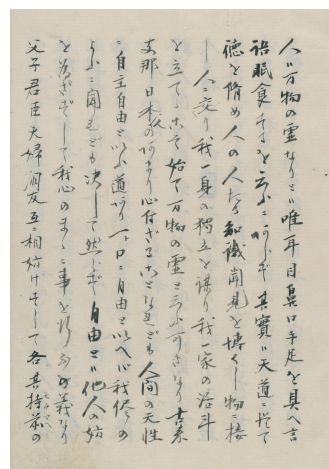 人ハ万物の霊なりとハ唯耳目鼻口手足を具へ言
語眠食するを云ふニあらず其實ハ天道ニ従て
徳を脩め人の人たる知識聞見を博くし物ニ接
し人ニ交り我一身の獨立を謀り我一家の活計
を立てゝこそ始て万物の霊と云ふ可きなり古来
支那日本人のあまり心付ざることなれども人間の天性
ニ自主自由と云ふ道あり一ト口ニ自由と云へハ我侭の
やうニ聞れども決して然らず自由とハ他人の妨
を為さずして我心のまゝニ事を行ふの義なり
父子君臣夫婦朋友互ニ相妨けずして各其持前の